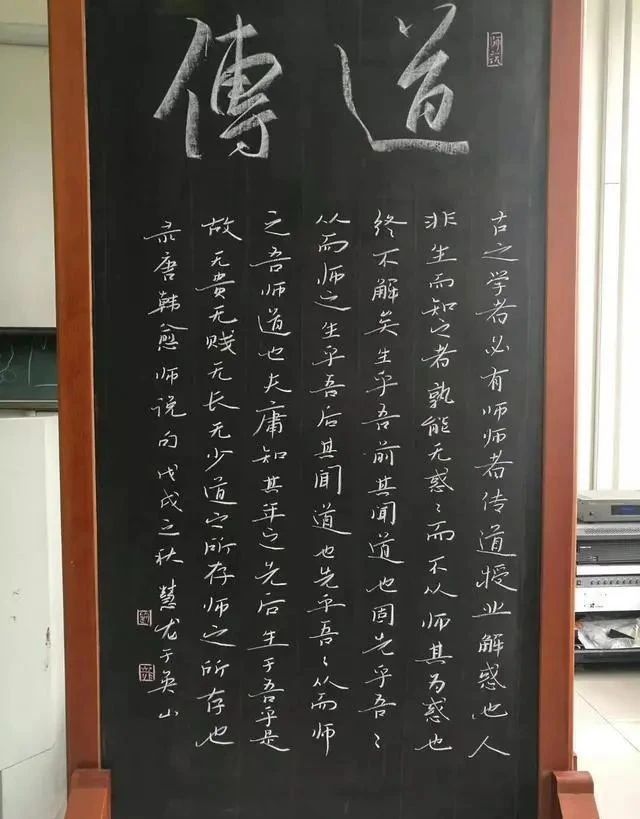 傳道
师说
古之学者必有师师者传道授业解惑也人
非生而知之者孰能无惑〻而不从师其为惑也
终不解矣生乎吾前其闻道也固先乎吾〻
从而师之生乎吾后其闻道也先乎吾〻从而师
之吾师道也夫庸知其年之先后生于吾乎是
故无贵无贱无长无少道之所存师之所存也
录唐韩愈师说句戊戌之秋慧龙于英山